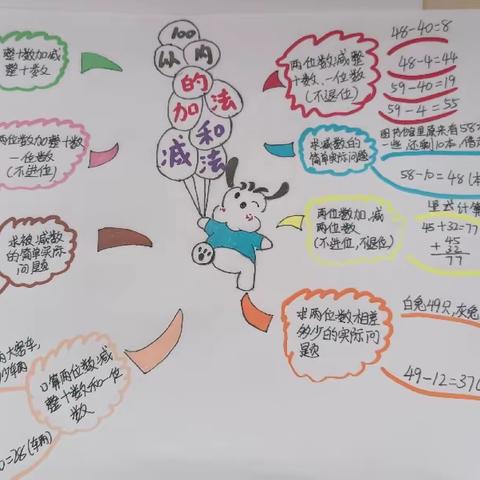 100
以内
的
加法
和
减法
整十数加减
整十数
两位数加整十数
一位数
(不进位)
求被减数
的简单实际
问题
口算两位数减
整十数和一位
数
两位数减整
十数、一位数
(不退位)
48-40=8
48-4=44
59-40=19
59-4=55
求减数的
简单实际问题
图书馆里原来有58
一些,还剩10本,借
58-10=48(本
两位数加、减
两位数
(不进位,不退位)
竖式计算
45+32=77
45
+32
77
求两位数相差
多少的实际问
题
白兔49只,灰兔
49-12=37(
大客车,
少辆
=28(辆)